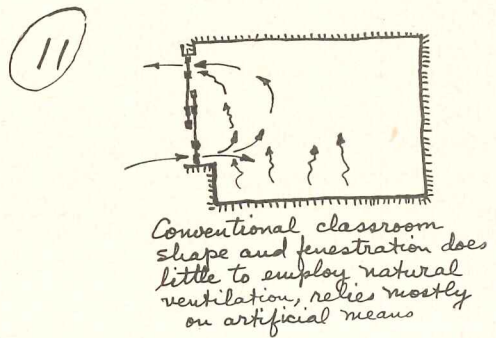 11
Conventional classroom
shape and fenestration does
little to employ natural
ventilation, relies mostly
on artificial means